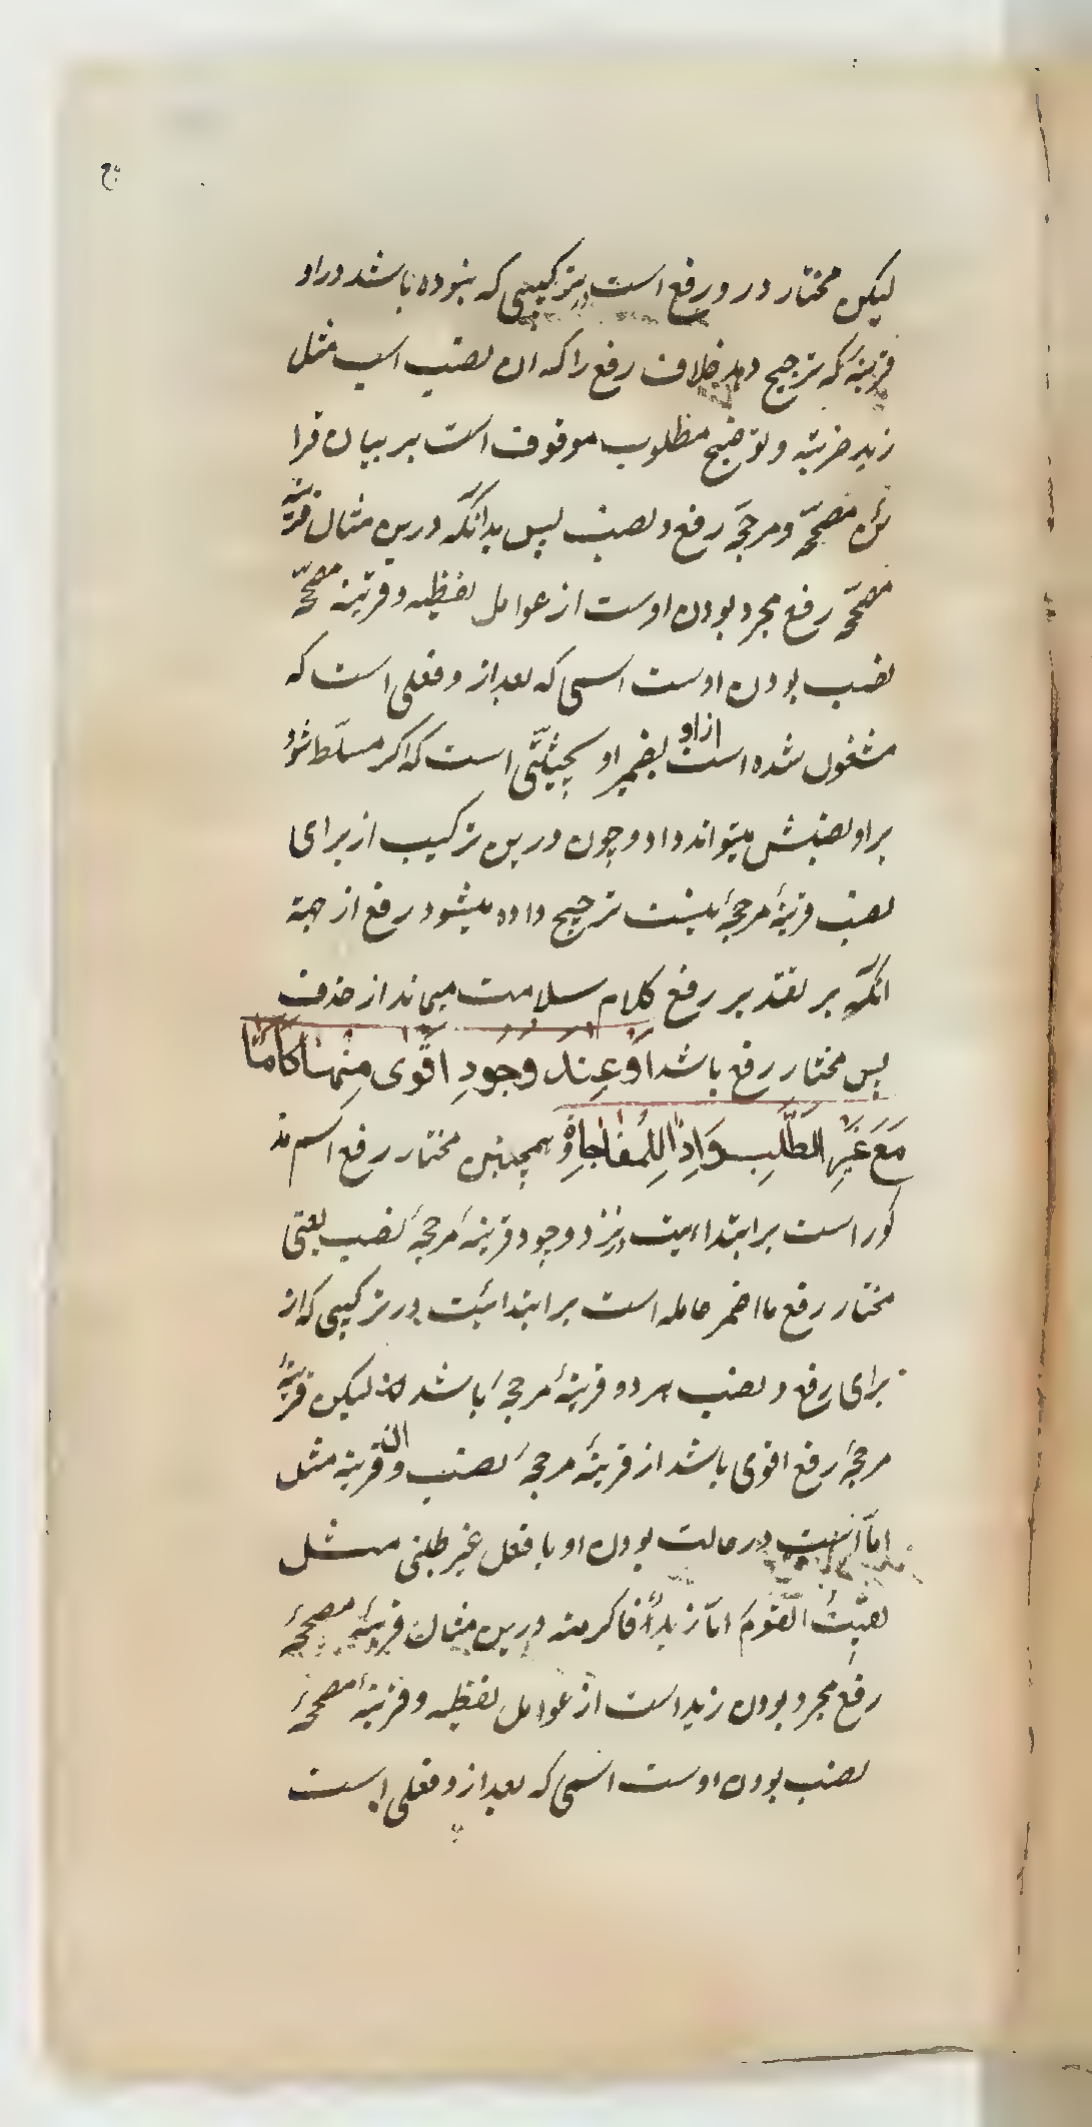 لیکن مختار درو رفع است در ترکیبی که نبوده باشد در او
قرینه که ترجیح دهد خلاف رفع را که ان نصب است مثل
زید ضربته و توضیح مطلوب موقوف است بر بیان قرا
ئن مصححه و مرجحه رفع و نصب پس بدانکه درین مثال قرینه
مصححه رفع مجرد بودن اوست از عوامل لفظیه و قرینه مصححه
نصب بودن اوست اسمی که بعد از و فعلی است که
مشغول شده است از او بضمیر او بحیثیتی است که اکر مسلّط شود
بر او نصبش میتواند داد و چون درین ترکیب از برای
نصب قرینهٔ مرجحهٔ نیست ترجیح داده میشود رفع از جهة
انکه بر تقدیر رفع کلام سلامت میماند از حذف
پس مختار رفع باشد اَوْ عِنْدَ وُجُودِ اَقْوٰی مِنْهَا کَاَمَّا
مَعَ غَیْرِ الطَّلَبِ وَاِذَا لِلْمُفَاجَاةِ همچنین مختار رفع اسم مذ
کور است بر ابتداءیت در نزد وجود قرینهٔ مرجحهٔ نصب یعنی
مختار رفع ما اضمر عامله است بر ابتدائیت در ترکیبی که از
برای رفع و نصب هر دو قرینهٔ مرجحهٔ باشد لیکن قرینهٔ
مرجحهٔ رفع اقوی باشد از قرینهٔ مرجحهٔ نصب و ان قرینه مثل
امّا است در حالت بودن او با فعل غیر طلبی مثل
لقیتُ القومَ امّا زیدٌ فاکرمته درین مثال قرینهٔ مصححهٔ
رفع مجرد بودن زید است از عوامل لفظیه و قرینهٔ مصححهٔ
نصب بودن اوست اسمی که بعد از و فعلی است